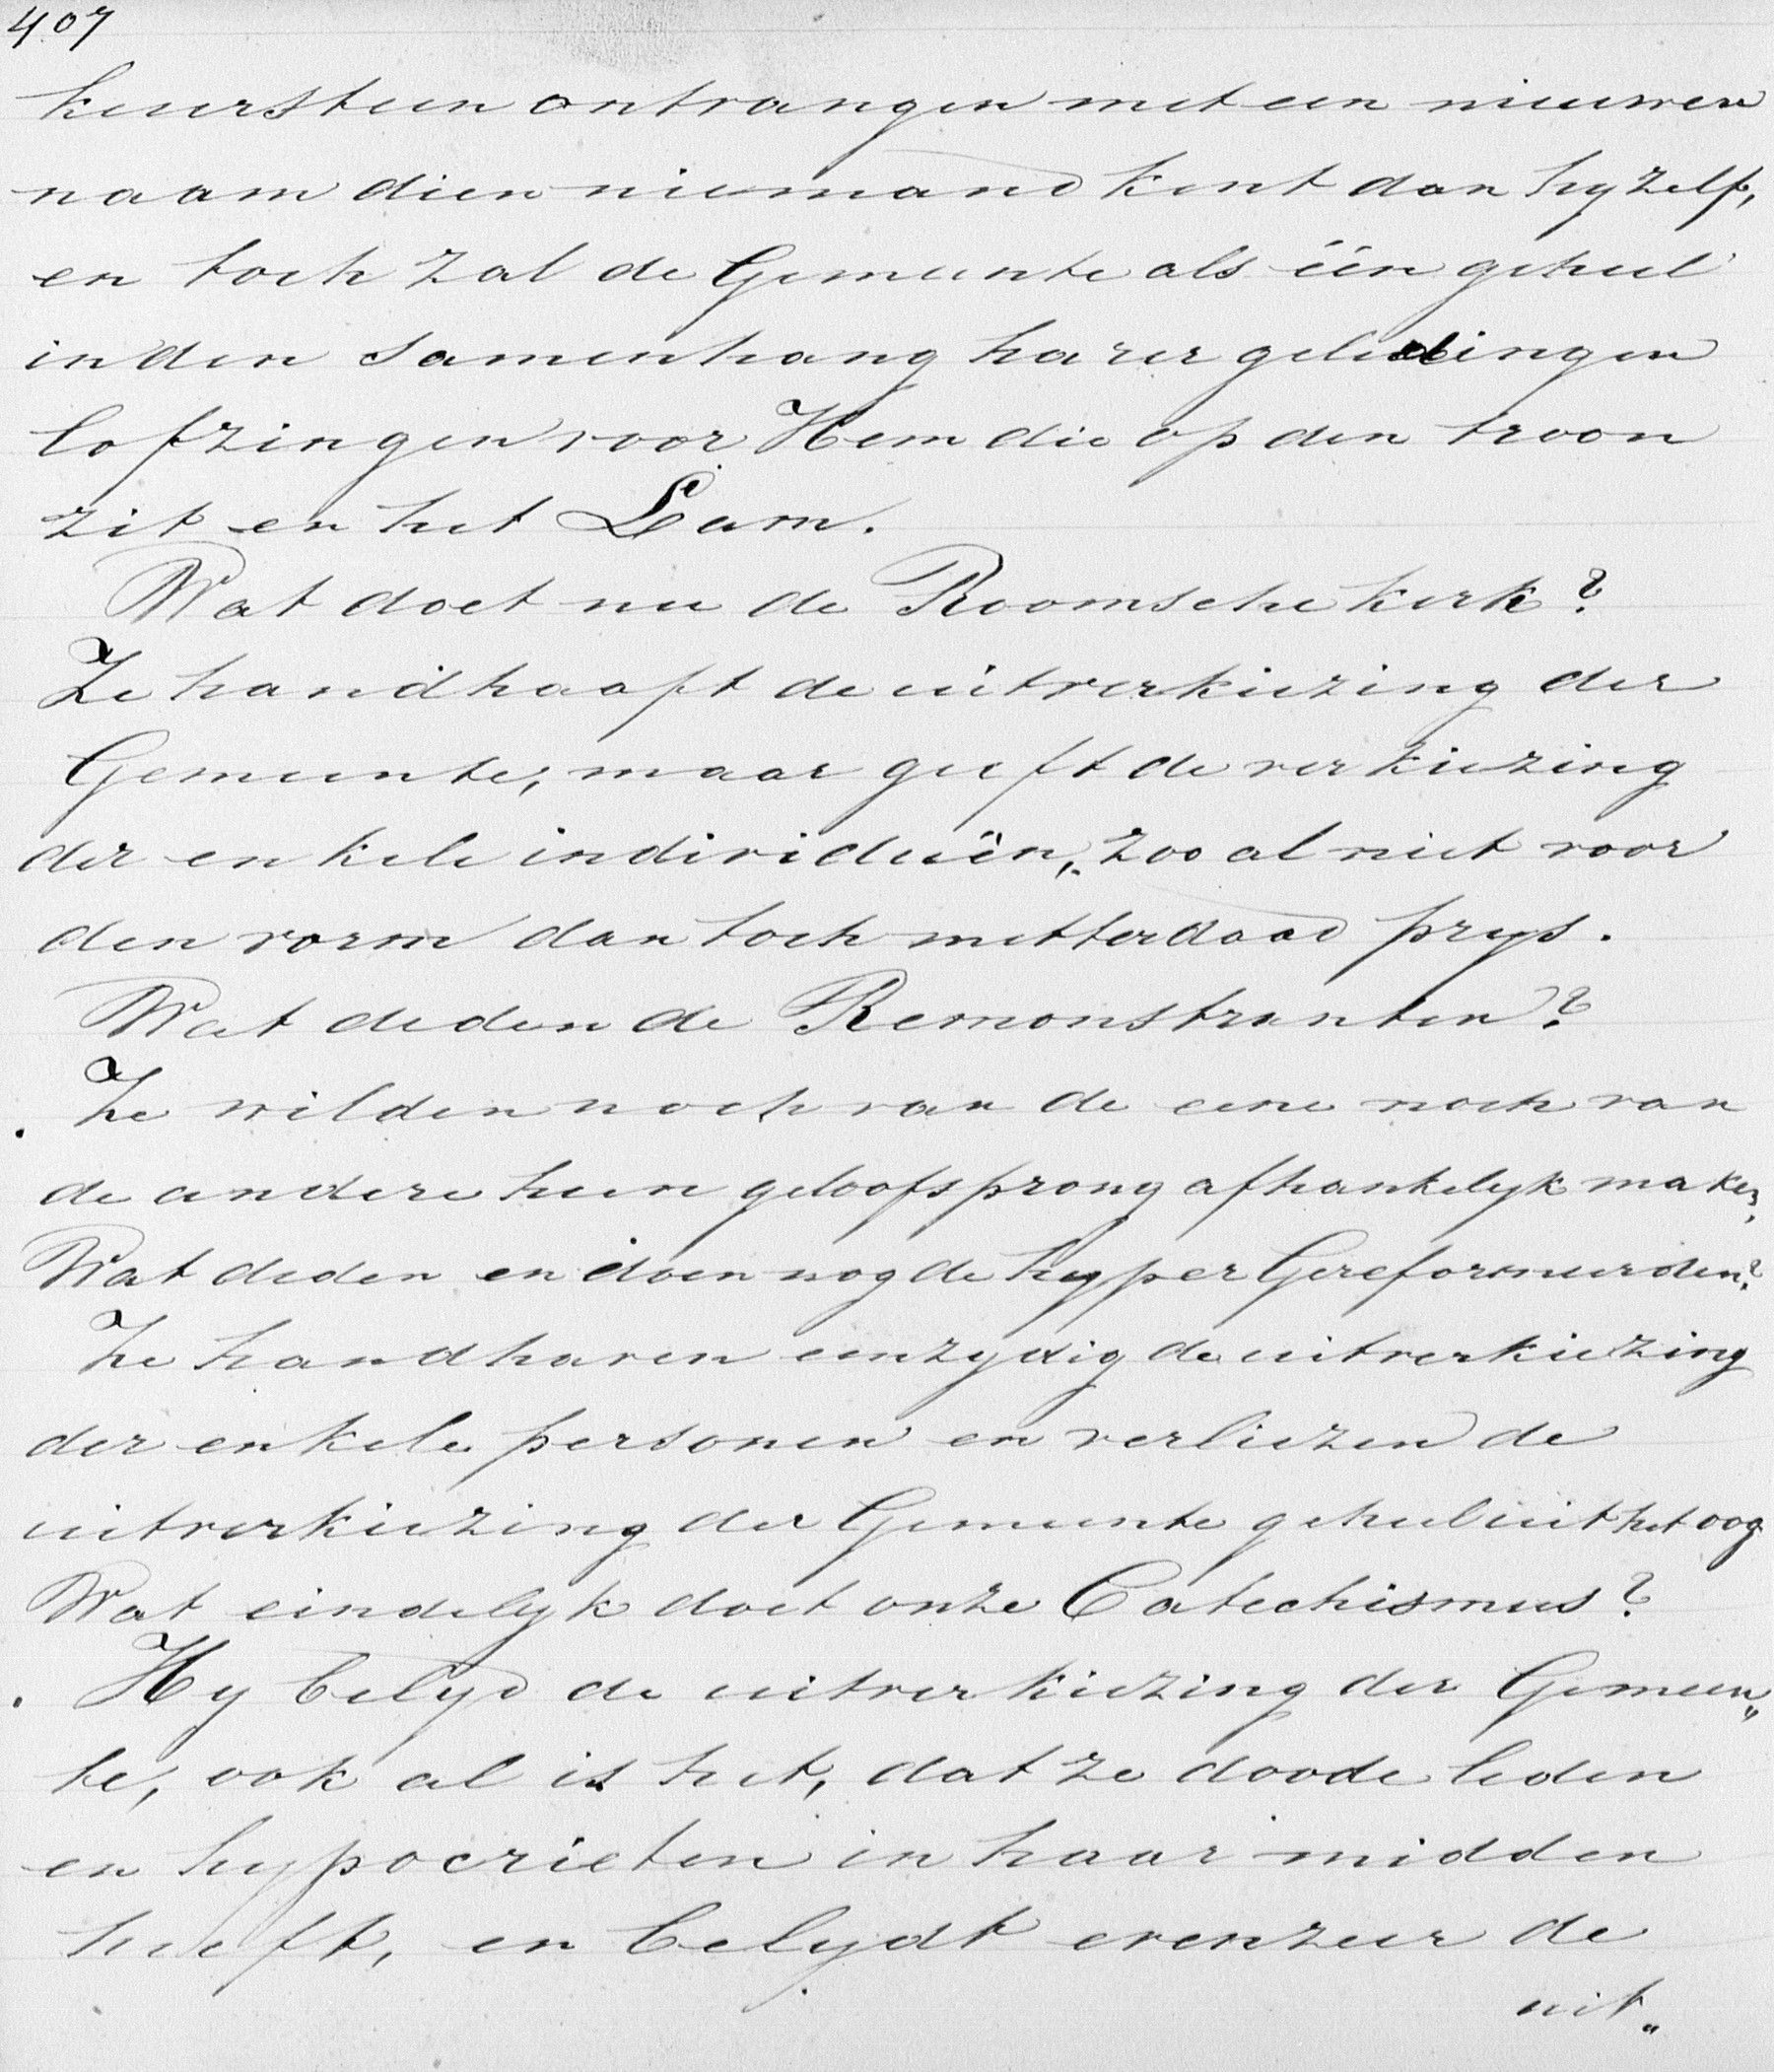 407
keursteen ontvangen met een nieuwen
naam dien niemand kent dan hy zelf,
en toch zal de Gemeente als één geheel
in den samenhang harer geledingen
lofzingen voor Hem die op den troon
zit en het Lam.
Wat doet nu de Roomsche kerk?
Ze handhaaft de uitverkiezing der
Gemeente, maar geeft de verkiezing
der enkele individuën, zoo al niet voor
den vorm dan toch metterdaad prys.
Wat deden de Remonstranten?
Ze wilden noch van de eene noch van
de andere hun geloofsprong afhankelyk maken,
Wat deden en doen nog de hyper Gereformeerden?
Ze handhaven eenzydig de uitverkiezing
der enkele personen en verliezen de
uitverkiezing der Gemeente geheel uit het oog
Wat eindelyk doet onze Catechismus?
Hy belyd de uitverkiezing der Gemeen„
te, ook al is het, dat ze doode leden
en hypocrieten in haar midden
heeft, en belydt evenzeer de
uit„